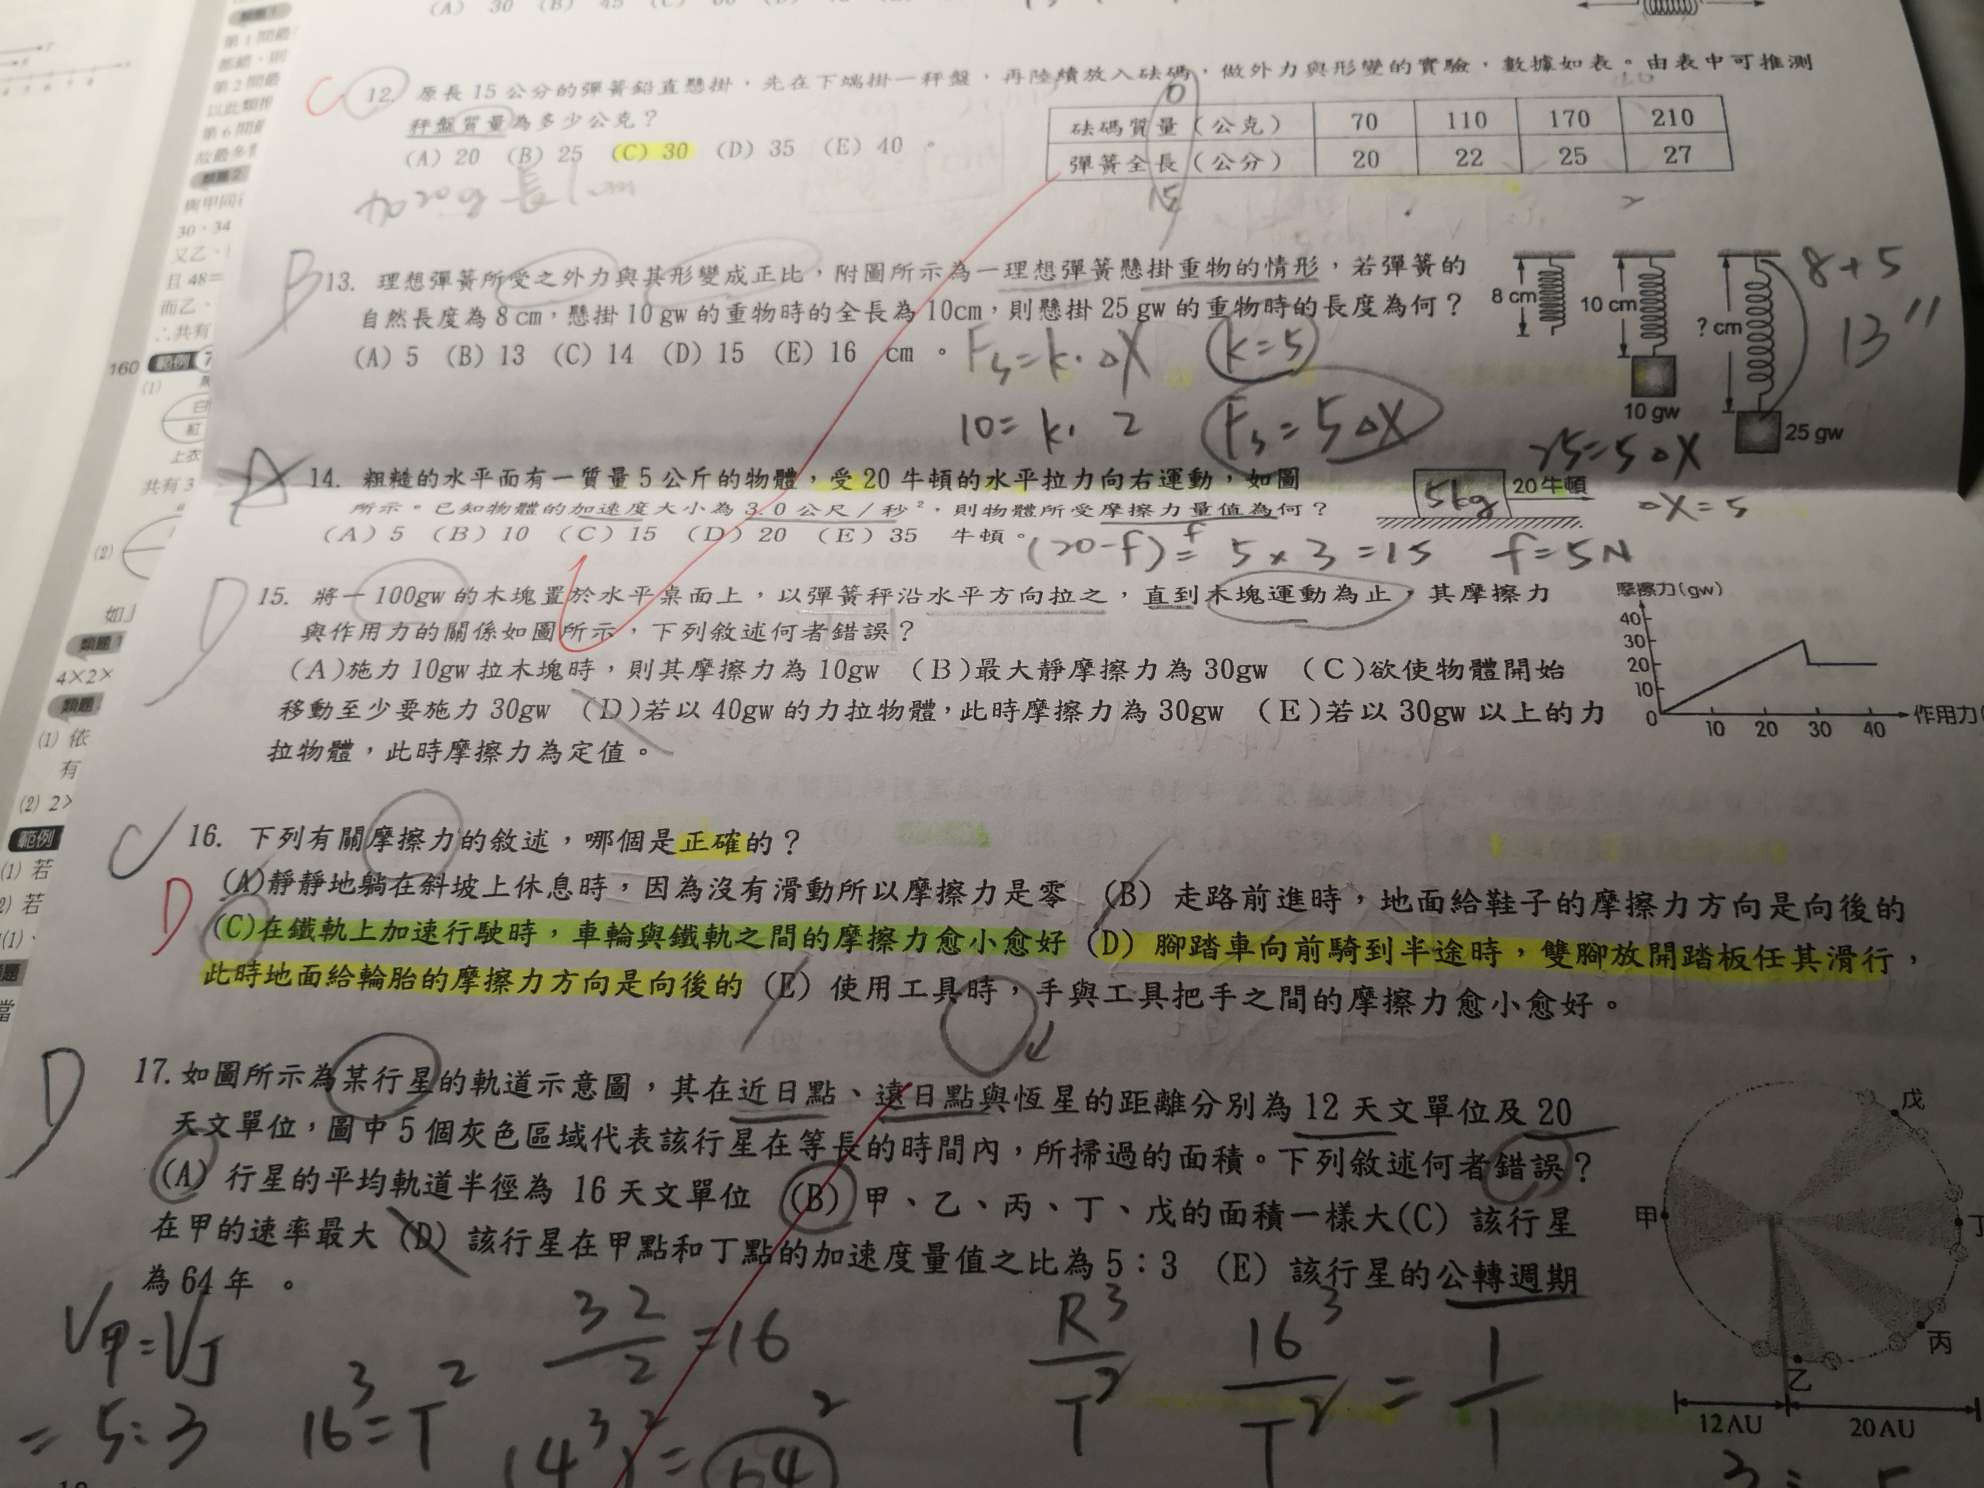 (A) 30 (B) 45
C 12. 原長 15 公分的彈簧鉛直懸掛，先在下端掛一秤盤，再陸續放入砝碼，做外力與形變的實驗，數據如表。由表中可推測
秤盤質量為多少公克？
(A) 20 (B) 25 (C) 30 (D) 35 (E) 40 。
0
砝碼質量（公克） 70 110 170 210
彈簧全長（公分） 20 22 25 27
15
加20g 長1cm
B 13. 理想彈簧所受之外力與其形變成正比，附圖所示為一理想彈簧懸掛重物的情形，若彈簧的
自然長度為 8 cm，懸掛 10 gw 的重物時的全長為 10cm，則懸掛 25 gw 的重物時的長度為何？
(A) 5 (B) 13 (C) 14 (D) 15 (E) 16 cm 。
8 cm 10 cm ? cm
10 gw 25 gw
8+5
13
Fs=k·△X k=5
10=k·2 Fs=5△X
25=5△X
△X=5
A 14. 粗糙的水平面有一質量 5 公斤的物體，受 20 牛頓的水平拉力向右運動，如圖
所示。已知物體的加速度大小為 3.0 公尺／秒²，則物體所受摩擦力量值為何？
(A) 5 (B) 10 (C) 15 (D) 20 (E) 35 牛頓。
5kg 20 牛頓
(20-f)=5×3=15 f=5N
D 15. 將一 100gw 的木塊置於水平桌面上，以彈簧秤沿水平方向拉之，直到木塊運動為止，其摩擦力
與作用力的關係如圖所示，下列敘述何者錯誤？
(A)施力 10gw 拉木塊時，則其摩擦力為 10gw (B)最大靜摩擦力為 30gw (C)欲使物體開始
移動至少要施力 30gw (D)若以 40gw 的力拉物體，此時摩擦力為 30gw (E)若以 30gw 以上的力
拉物體，此時摩擦力為定值。
摩擦力(gw)
40
30
20
10
0 10 20 30 40 作用力(
C 16. 下列有關摩擦力的敘述，哪個是正確的？
D (A)靜靜地躺在斜坡上休息時，因為沒有滑動所以摩擦力是零 (B) 走路前進時，地面給鞋子的摩擦力方向是向後的
(C)在鐵軌上加速行駛時，車輪與鐵軌之間的摩擦力愈小愈好 (D) 腳踏車向前騎到半途時，雙腳放開踏板任其滑行，
此時地面給輪胎的摩擦力方向是向後的 (E) 使用工具時，手與工具把手之間的摩擦力愈小愈好。
D 17. 如圖所示為某行星的軌道示意圖，其在近日點、遠日點與恆星的距離分別為 12 天文單位及 20
天文單位，圖中 5 個灰色區域代表該行星在等長的時間內，所掃過的面積。下列敘述何者錯誤？
(A) 行星的平均軌道半徑為 16 天文單位 (B) 甲、乙、丙、丁、戊的面積一樣大(C) 該行星
在甲的速率最大 (D) 該行星在甲點和丁點的加速度量值之比為 5：3 (E) 該行星的公轉週期
為 64 年 。
甲 乙 丙 丁 戊
12AU 20AU
V甲=V丁
=5:3
16³=T²
32/2=16
(4³)²=64²
R³/T² 16³/T²=1/1
3:5
160 範例 7
第 1 間最
第 2 間最
以此類推
第 6 間最
類題 2
30、34
且 48=
∴共有
上衣
共有 3
(1)
(2)
類題 1
4×2×
類題
(1) 依
有
(2) 2>
範例
(1) 若
2) 若